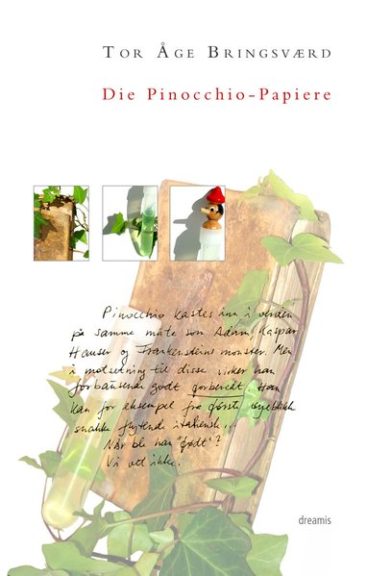 Tor Åge Bringsværd
Die Pinocchio-Papiere
Pinocchio kastes inn i verden
på samme måte som Adam, Kaspar
Hauser og Frankensteins monster. Men
i motsetning til disse virker han
forbausende godt forberedt. Han
kan for eksempel fra første øyeblikk
snakke flytende italiensk...
Når ble han "født"?
Vi vet ikke.
dreamis